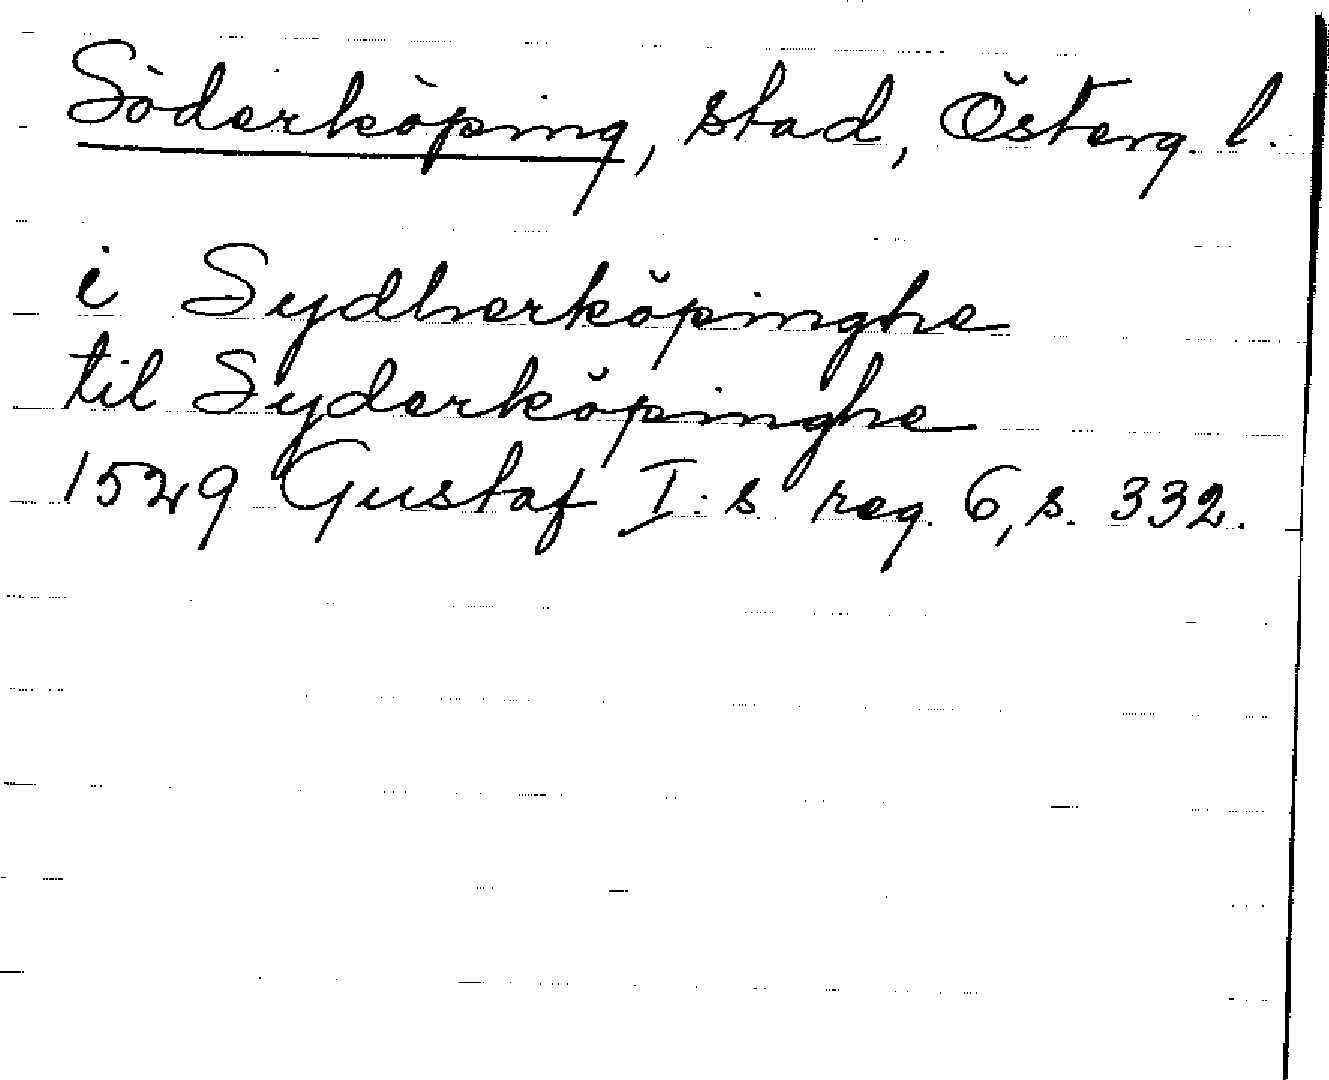 Söderköping, stad, Österg. l.
i Sydherköpinghe
til Syderköpinghe
1529 Gustaf I:s reg. 6, s. 332.